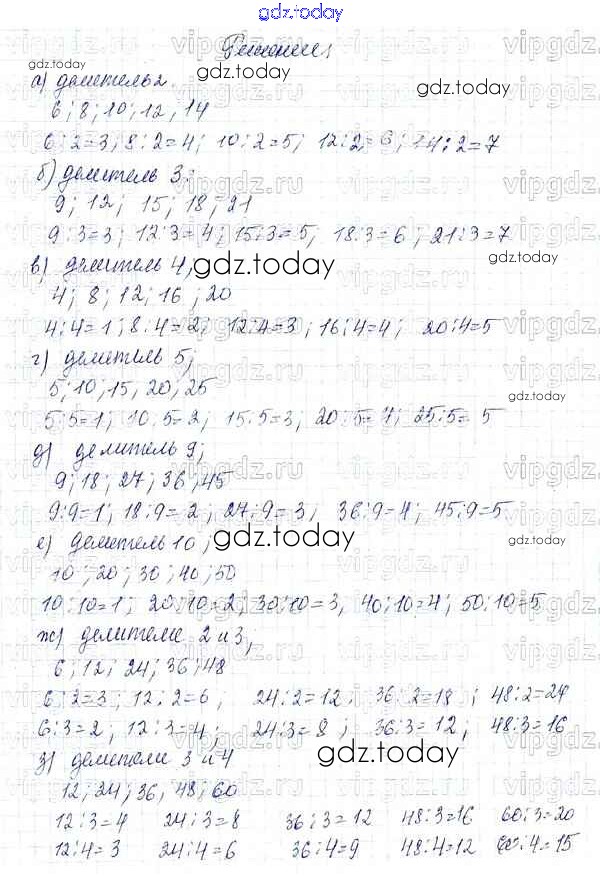 gdz.today
Решение
gdz.today
а) делитель 2.
6; 8; 10; 12; 14
gdz.today
6:2=3; 8:2=4; 10:2=5; 12:2=6; 14:2=7
б) делитель 3:
9; 12; 15; 18; 21
9:3=3; 12:3=4; 15:3=5, 18:3=6; 21:3=7
в) делитель 4,
gdz.today
gdz.today
4; 8; 12; 16; 20
4:4=1; 8:4=2; 12:4=3; 16:4=4; 20:4=5
г) делитель 5;
5; 10; 15, 20; 25
gdz.today
5:5=1; 10:5=2; 15:5=3; 20:5=4; 25:5=5
д) делитель 9;
gdz.today
9; 18; 27; 36; 45
9:9=1; 18:9=2; 27:9=3; 36:9=4; 45:9=5
е) делитель 10;
gdz.today
10; 20; 30; 40; 50
10:10=1; 20:10=2; 30:10=3, 40:10=4; 50:10=5
ж) делители 2 и 3;
6; 12; 24; 36; 48
gdz.today
6:2=3; 12:2=6; 24:2=12; 36:2=18; 48:2=24
6:3=2; 12:3=4; 24:3=8; 36:3=12; 48:3=16
gdz.today
з) делители 3 и 4
gdz.today
12; 24; 36, 48; 60
12:3=4 24:3=8 36:3=12 48:3=16 60:3=20
gdz.today
12:4=3 24:4=6 36:4=9 48:4=12 60:4=15
vipgdz.ru